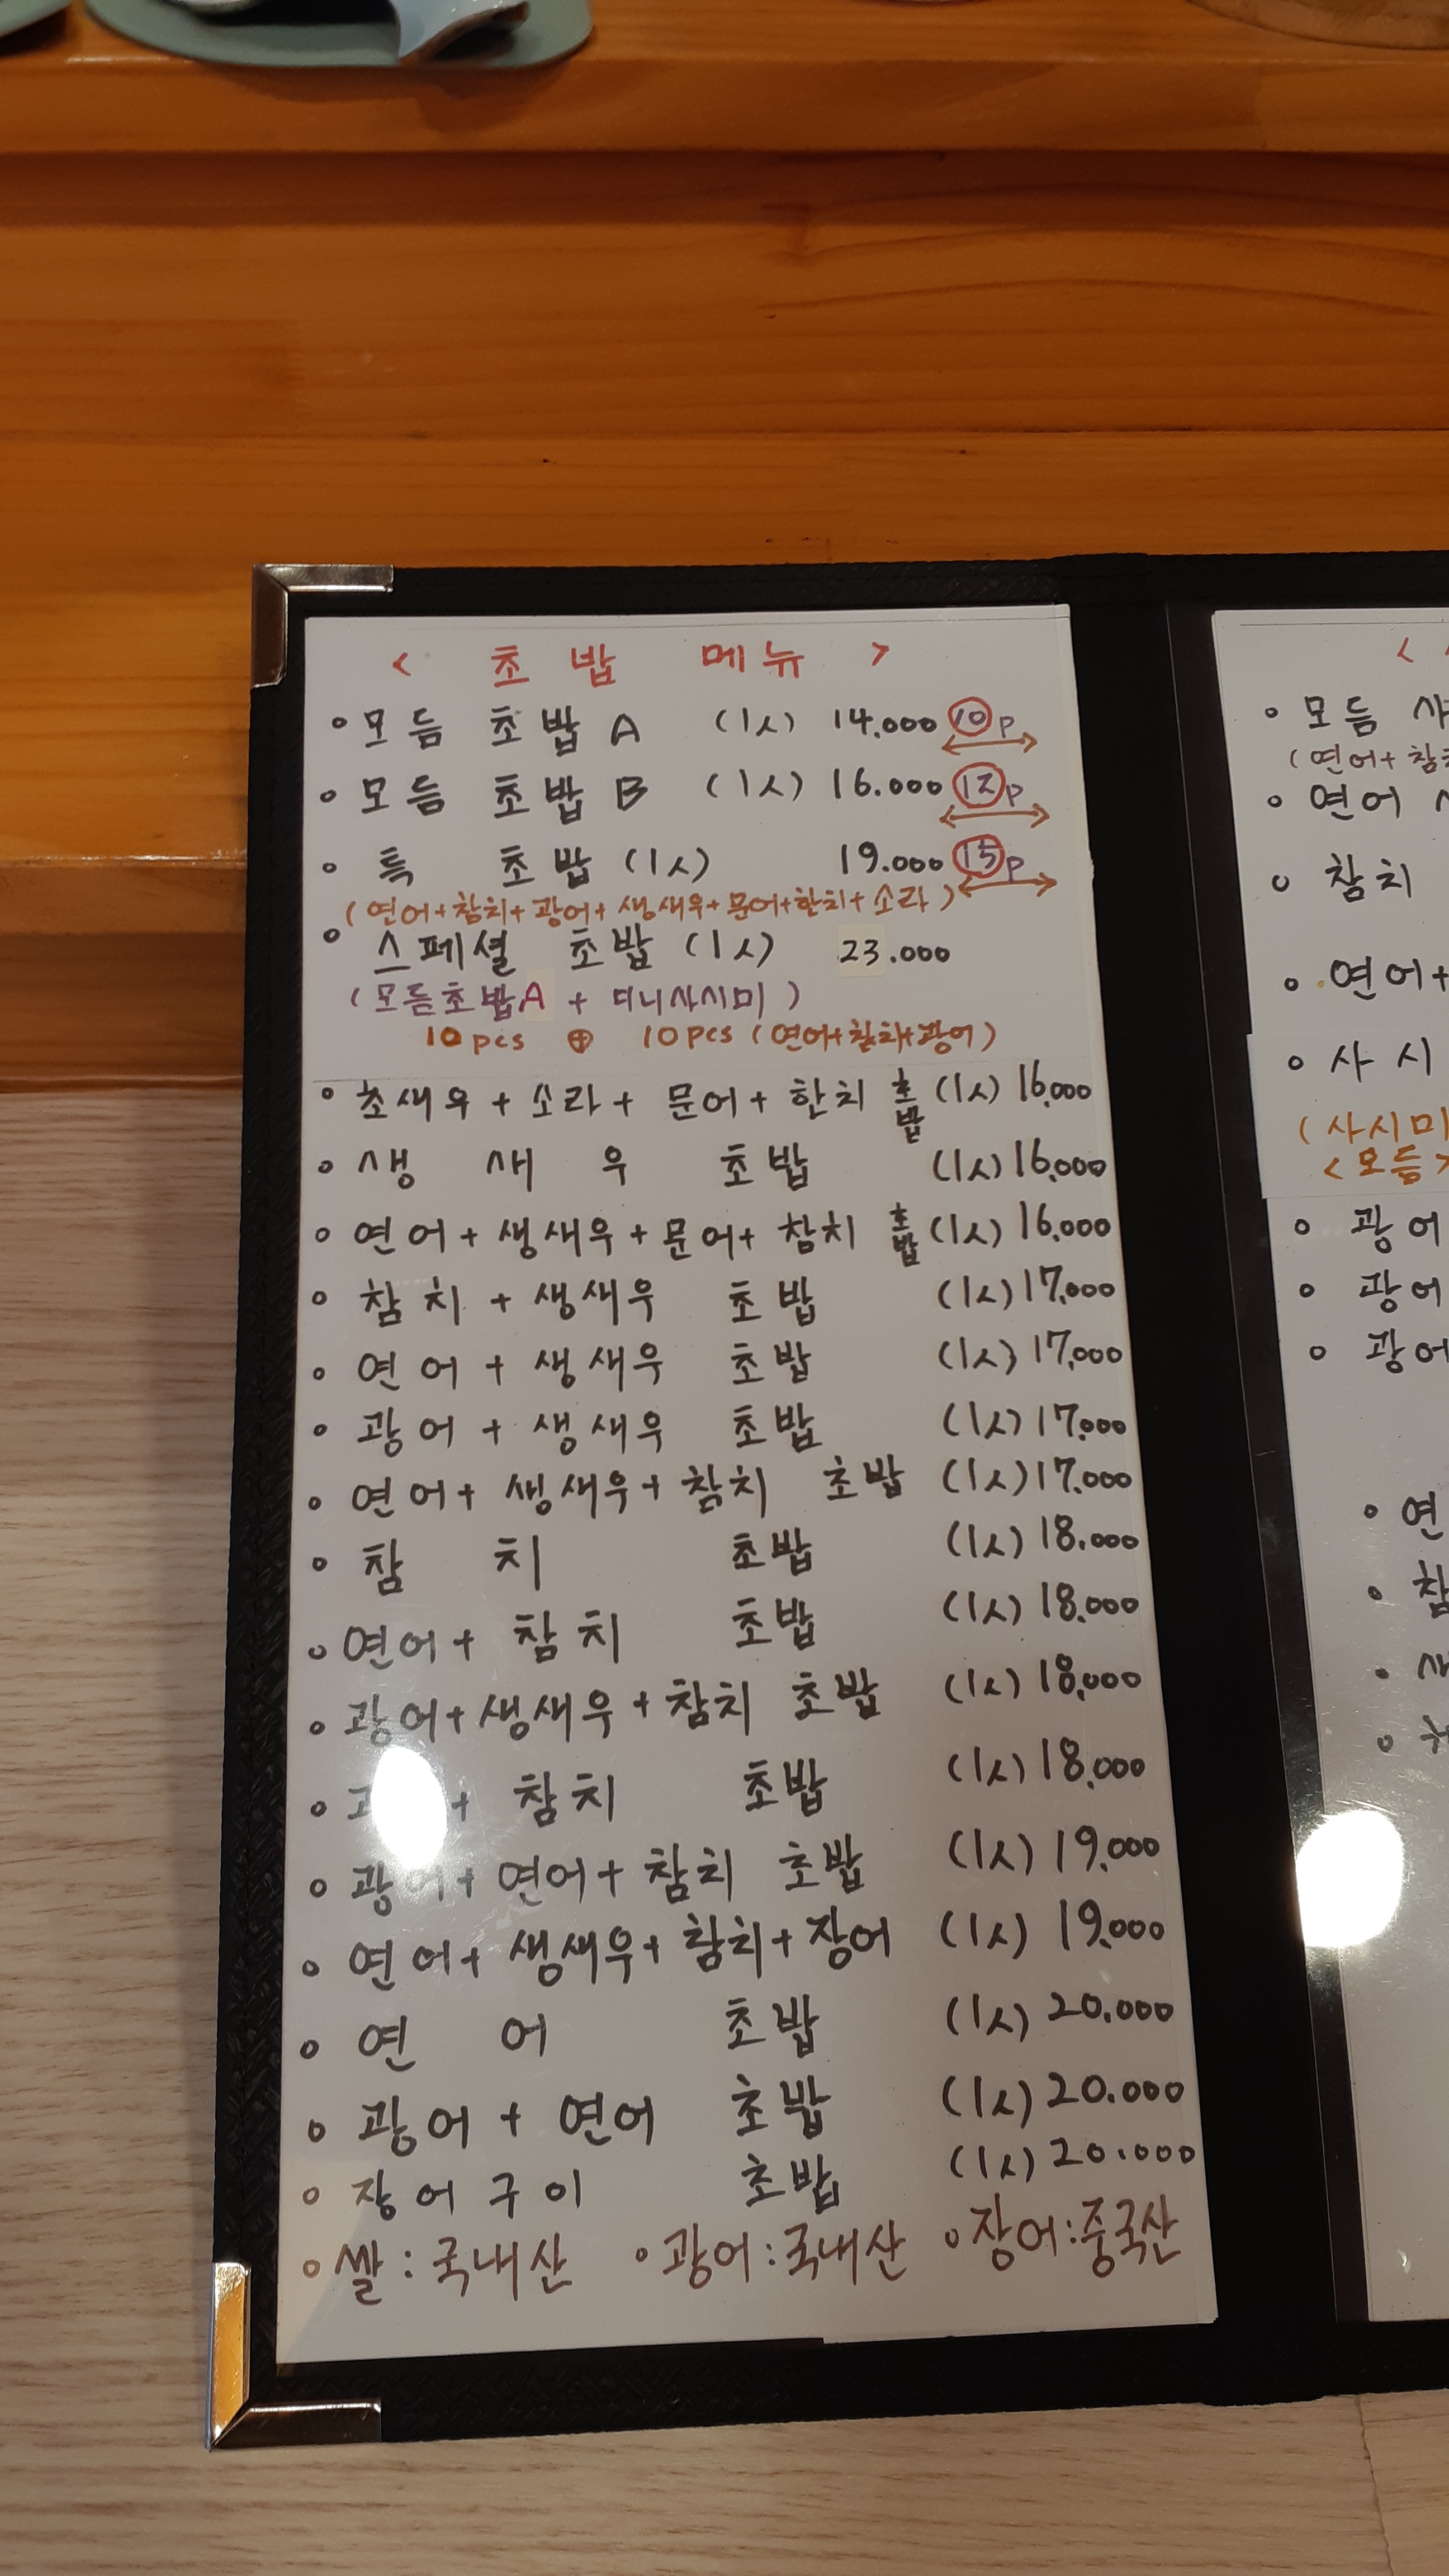 < 초밥 메뉴 >
○ 모듬 초밥 A (1人) 14.000 10p
○ 모듬 초밥 B (1人) 16.000 12p
○ 특 초밥 (1人) 19.000 15p
(연어+참치+광어+생새우+문어+한치+소라)
○ 스페셜 초밥 (1人) 23.000
(모듬초밥A + 미니사시미)
10pcs ⊕ 10pcs (연어+참치+광어)
○ 초새우 + 소라 + 문어 + 한치 초밥 (1人) 16,000
○ 생새우 초밥 (1人) 16,000
○ 연어 + 생새우 + 문어 + 참치 초밥 (1人) 16,000
○ 참치 + 생새우 초밥 (1人) 17,000
○ 연어 + 생새우 초밥 (1人) 17,000
○ 광어 + 생새우 초밥 (1人) 17,000
○ 연어 + 생새우 + 참치 초밥 (1人) 17.000
○ 참치 초밥 (1人) 18.000
○ 연어 + 참치 초밥 (1人) 18.000
○ 광어 + 생새우 + 참치 초밥 (1人) 18,000
○ + 참치 초밥 (1人) 18,000
○ 광어 + 연어 + 참치 초밥 (1人) 19.000
○ 연어 + 생새우 + 참치 + 장어 (1人) 19.000
○ 연어 초밥 (1人) 20.000
○ 광어 + 연어 초밥 (1人) 20.000
○ 장어구이 초밥 (1人) 20.000
○ 쌀 : 국내산 ○ 광어 : 국내산 ○ 장어 : 중국산
<
○ 모듬
(연어+
○ 연어
○ 참치
○ 연어+
○ 사시
(사시미
<모듬>
○ 광어
○ 광어
○ 광어